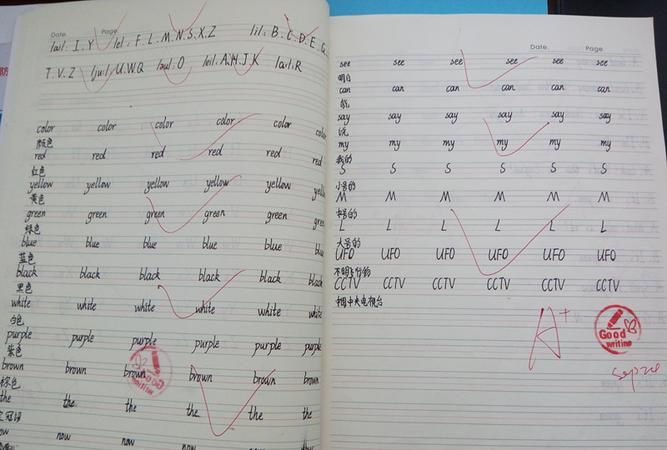 Date. Page.
/ai/: I.Y /e/: F.L.M.N.S.X.Z /i/: B.C.D.E.G.
T.V.Z /ju:/: U.W.Q O A.H.J.K R
color color color color color color
颜色
red red red red red red
红色
yellow yellow yellow yellow yellow yellow
黄色
green green green green green green
绿色
blue blue blue blue blue blue
蓝色
black black black black black black
黑色
white white white white white white
白色
purple purple purple purple purple purple
紫色
brown brown brown brown brown brown
棕色
the the the the the the
定冠词
now now now now now
Good writing
Date. Page
see see see see see see
明白
can can can can can can
能
say say say say say say
说
my my my my my my
我的
S S S S S S
小号的
M M M M M M
中号的
L L L L L L
大号的
UFO UFO UFO UFO UFO UFO
不明飞行物
CCTV CCTV CCTV CCTV CCTV CCTV
中国中央电视台
A+
Good writing